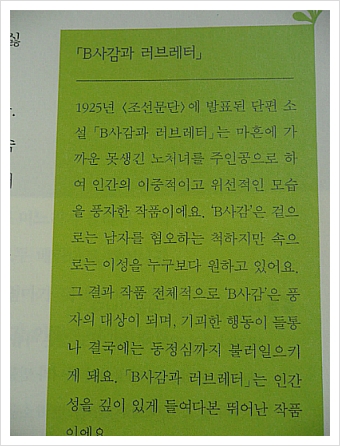 「B사감과 러브레터」
1925년 〈조선문단〉에 발표된 단편 소
설 「B사감과 러브레터」는 마흔에 가
까운 못생긴 노처녀를 주인공으로 하
여 인간의 이중적이고 위선적인 모습
을 풍자한 작품이에요. ‘B사감’은 겉으
로는 남자를 혐오하는 척하지만 속으
로는 이성을 누구보다 원하고 있어요.
그 결과 작품 전체적으로 ‘B사감’은 풍
자의 대상이 되며, 기괴한 행동이 들통
나 결국에는 동정심까지 불러일으키
게 돼요. 「B사감과 러브레터」는 인간
성을 깊이 있게 들여다본 뛰어난 작품
이에요